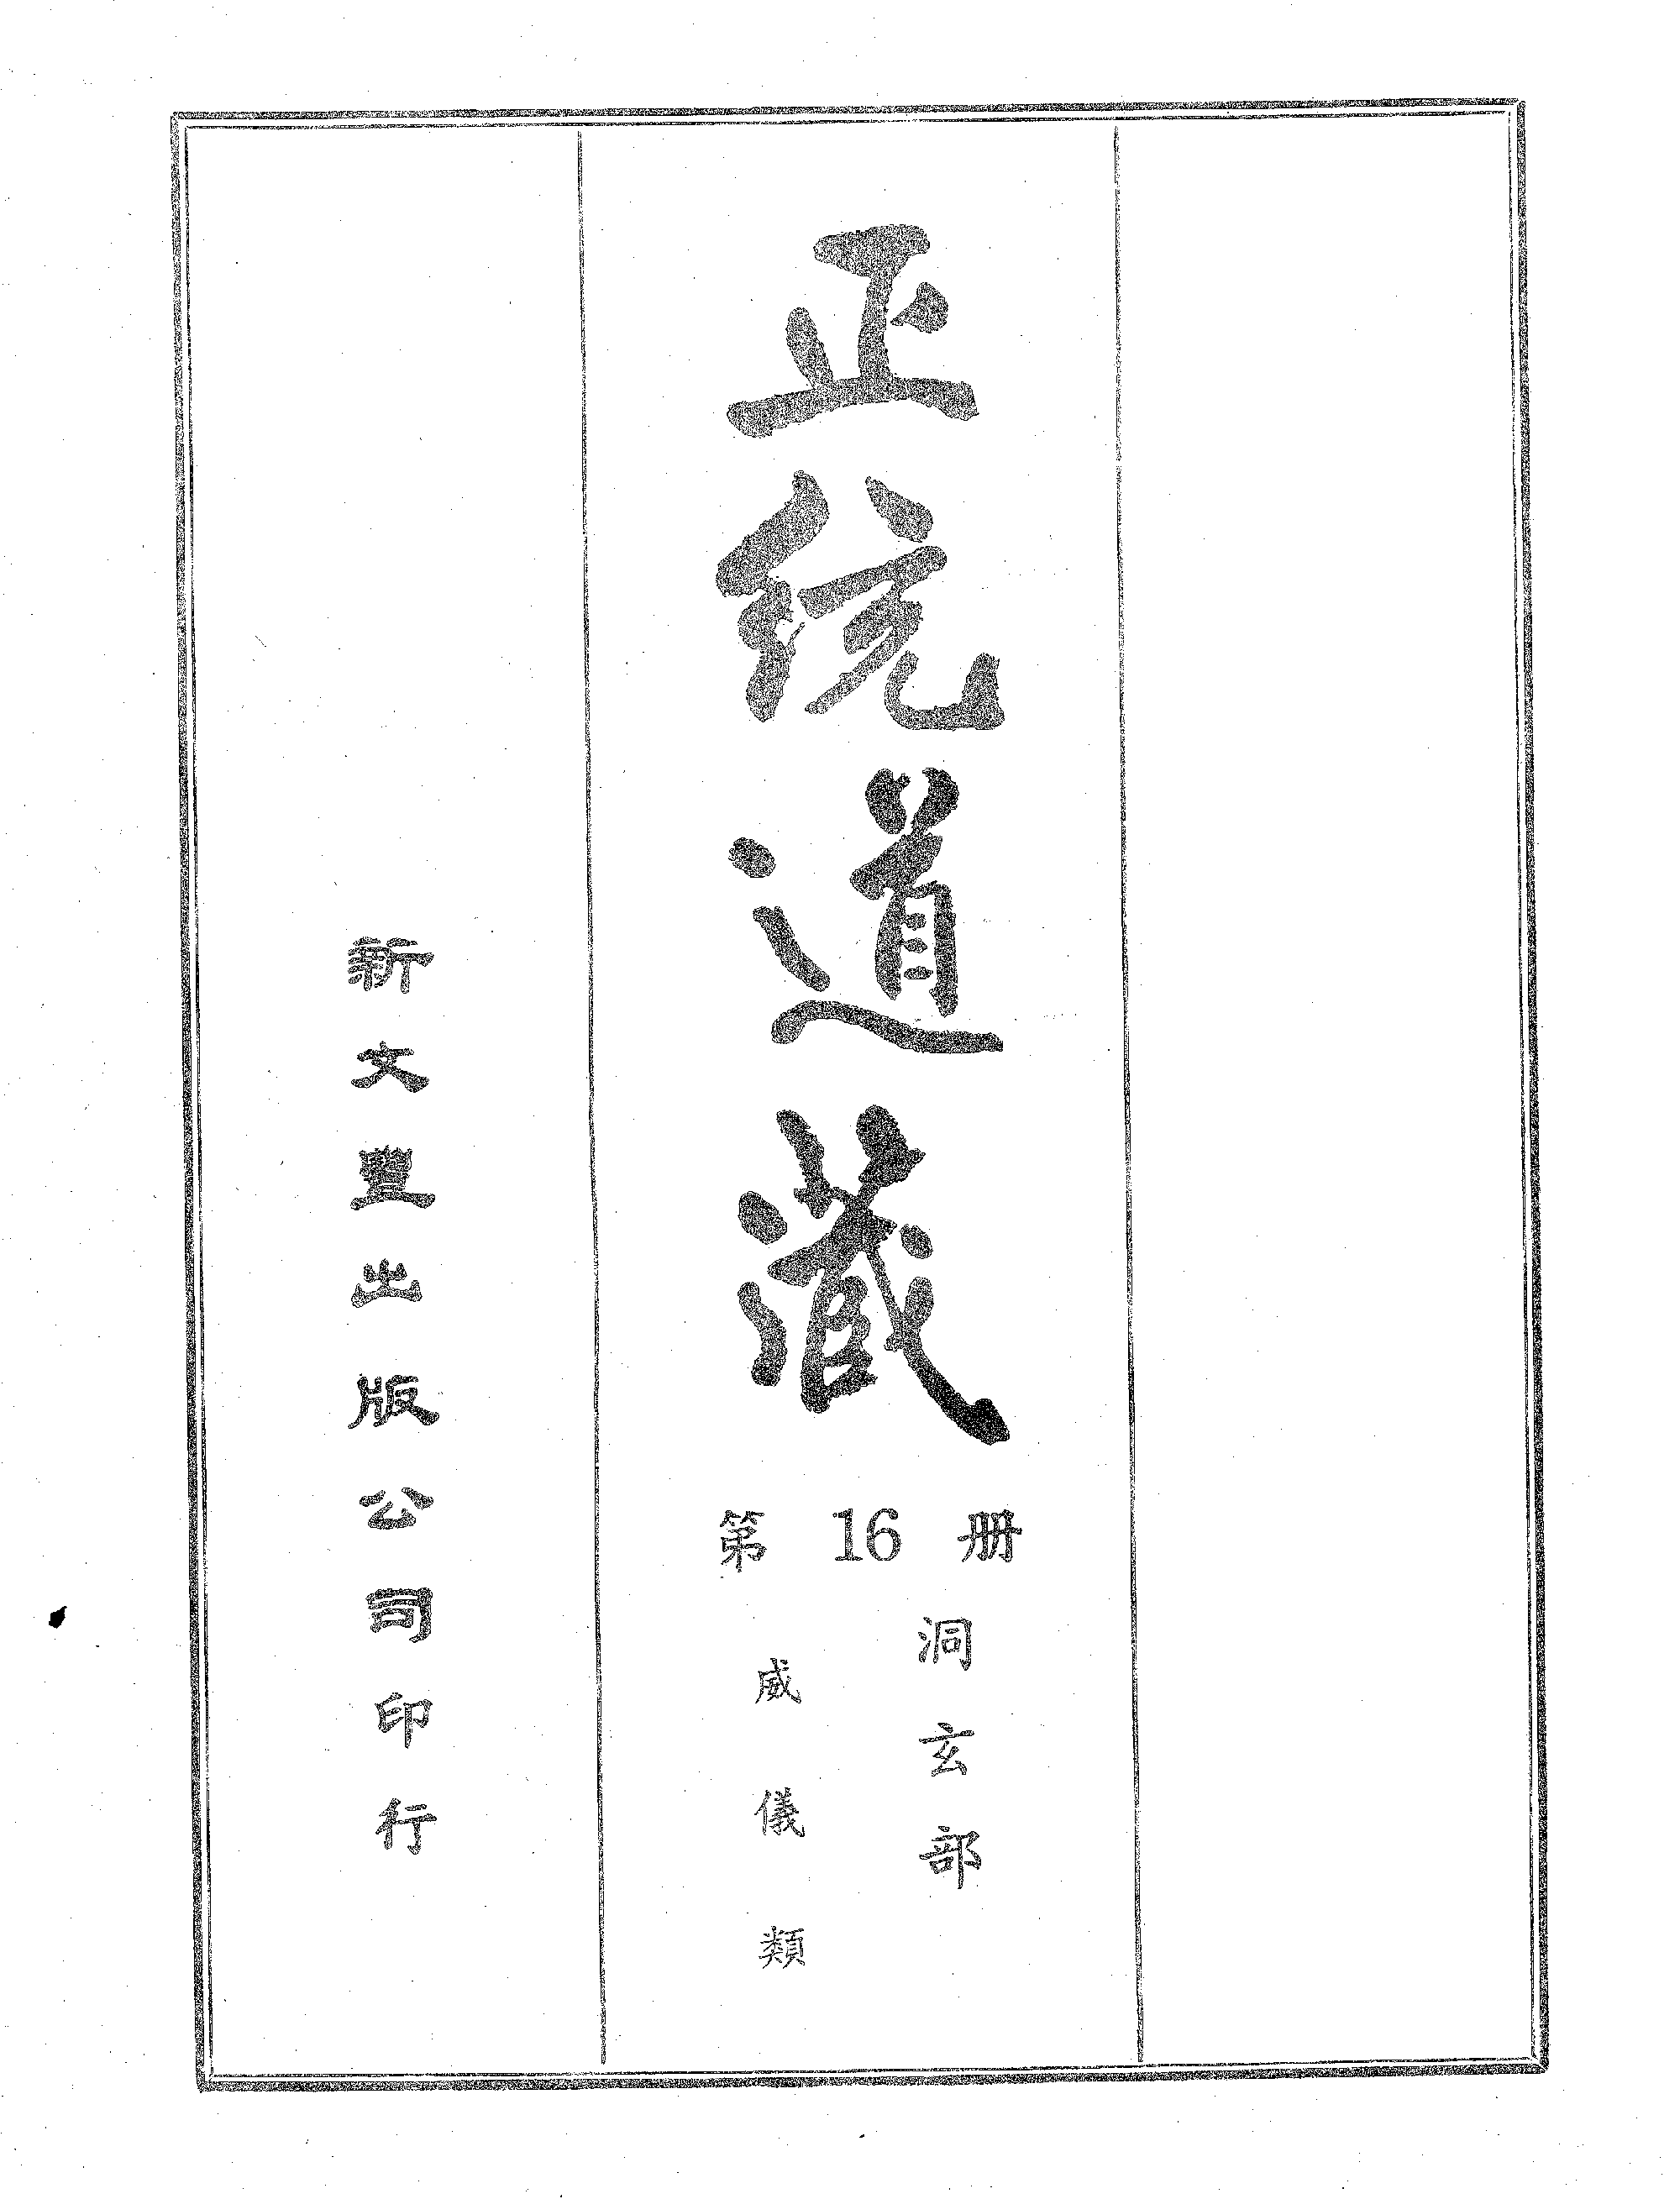 正統道藏
第16册
洞玄部
威儀類
新文豐出版公司印行